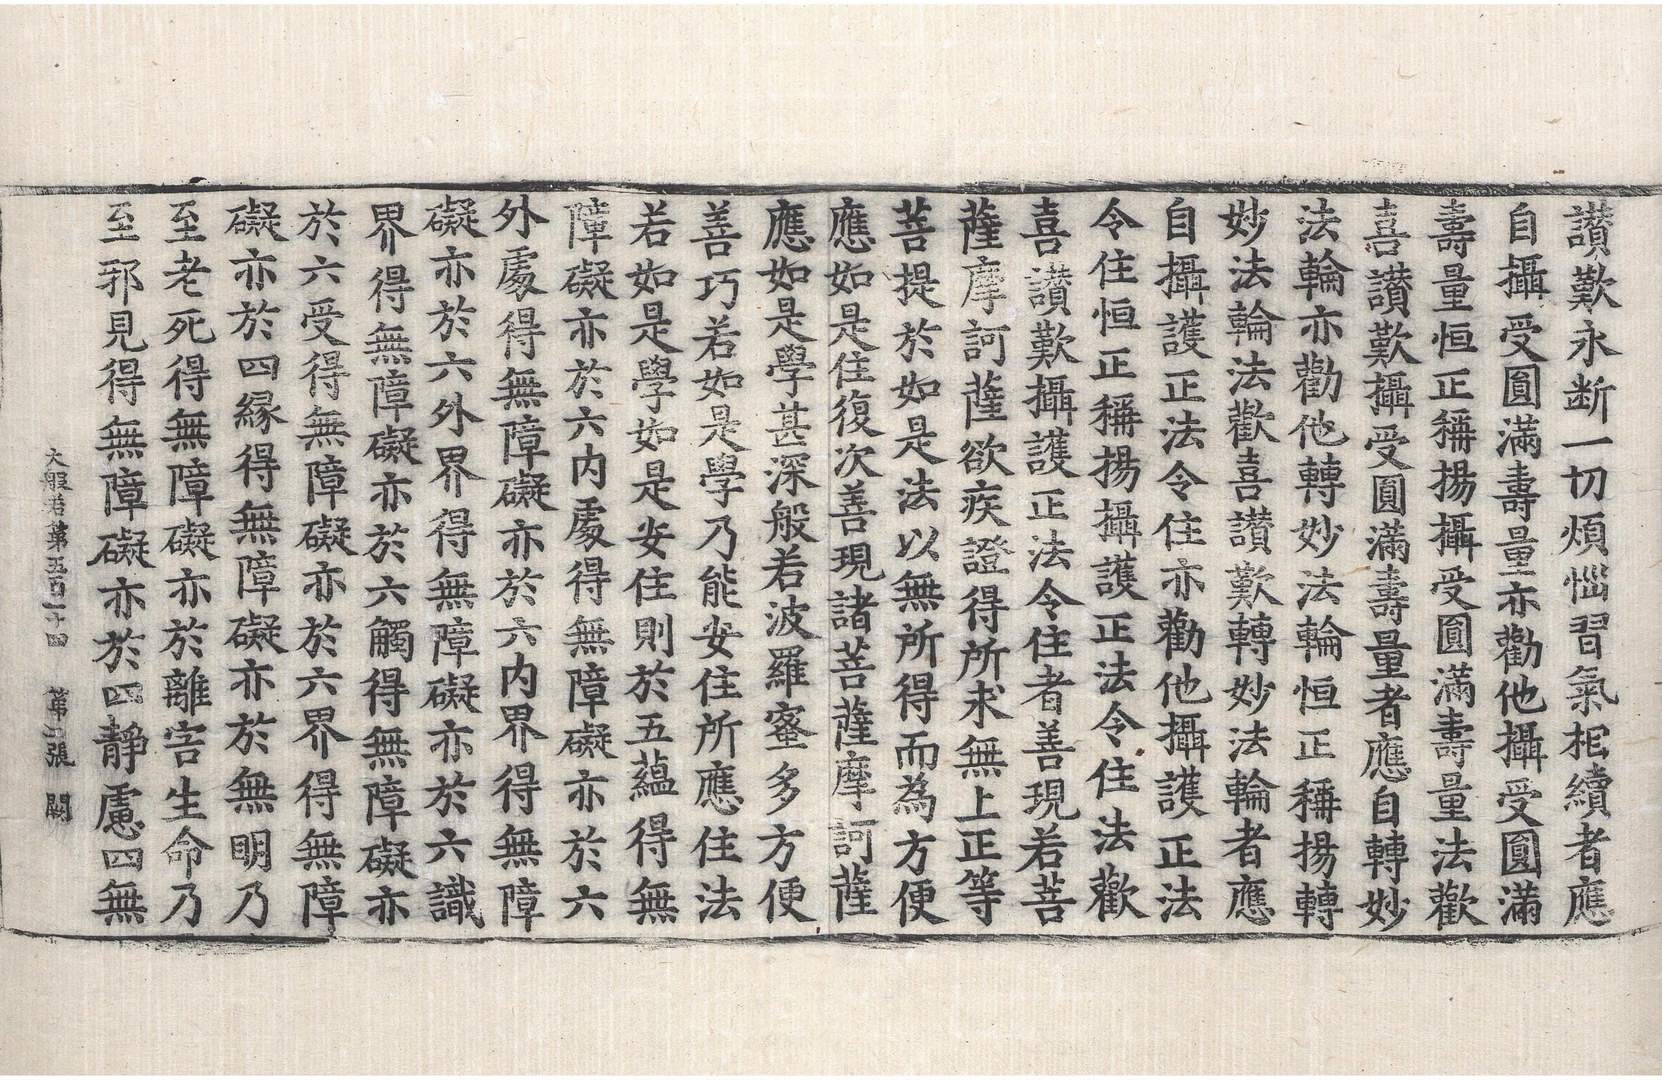 讚歎永断一切煩惱習氣相續者應
自攝受圓滿壽量亦勸他攝受圓滿
壽量恒正稱揚攝受圓滿壽量法歡
喜讚歎攝受圓滿壽量者應自轉妙
法輪亦勸他轉妙法輪恒正稱揚轉
妙法輪法歡喜讚歎轉妙法輪者應
自攝護正法令住亦勸他攝護正法
令住恒正稱揚攝護正法令住法歡
喜讚歎攝護正法令住者善現若菩
薩摩訶薩欲疾證得所求無上正等
菩提於如是法以無所得而為方便
應如是住復次善現諸菩薩摩訶薩
應如是學甚深般若波羅蜜多方便
善巧若如是學乃能安住所應住法
若如是學如是安住則於五蘊得無
障礙亦於六内處得無障礙亦於六
外處得無障礙亦於六内界得無障
礙亦於六外界得無障礙亦於六識
界得無障礙亦於六觸得無障礙亦
於六受得無障礙亦於六界得無障
礙亦於四縁得無障礙亦於無明乃
至老死得無障礙亦於離害生命乃
至邪見得無障礙亦於四靜慮四無
大般若第五百一十四 第張 闕